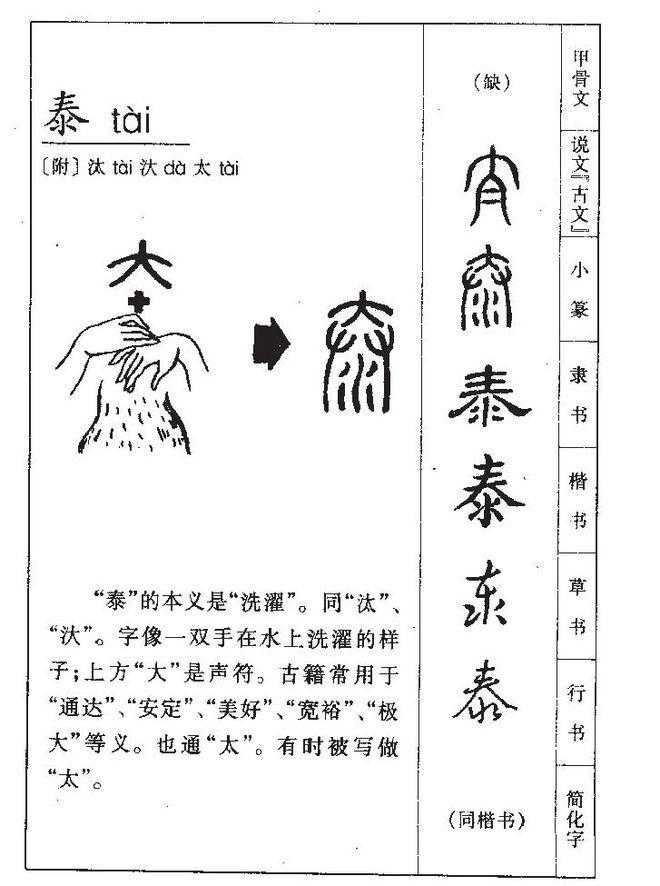 泰 tài
〔附〕汰 tài 汏 dà 太 tài
大
+
泰
“泰”的本义是“洗濯”。同“汰”、
“汏”。字像一双手在水上洗濯的样
子；上方“大”是声符。古籍常用于
“通达”、“安定”、“美好”、“宽裕”、“极
大”等义。也通“太”。有时被写做
“太”。
（缺）
泰
泰
泰
泰
泰
（同楷书）
甲骨文
说文『古文』
小篆
隶书
楷书
草书
行书
简化字